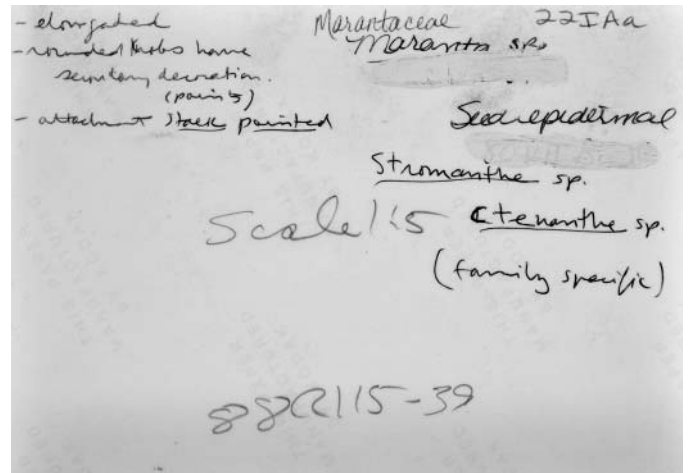 - elongated
- rounded knobs have
secondary decoration.
(points)
- attachment stalk pointed
Marantaceae 22IAa
Maranta sp.
Seed epidermal
Stromanthe sp.
Ctenanthe sp.
(family specific)
Scale 1:5
88R115-39